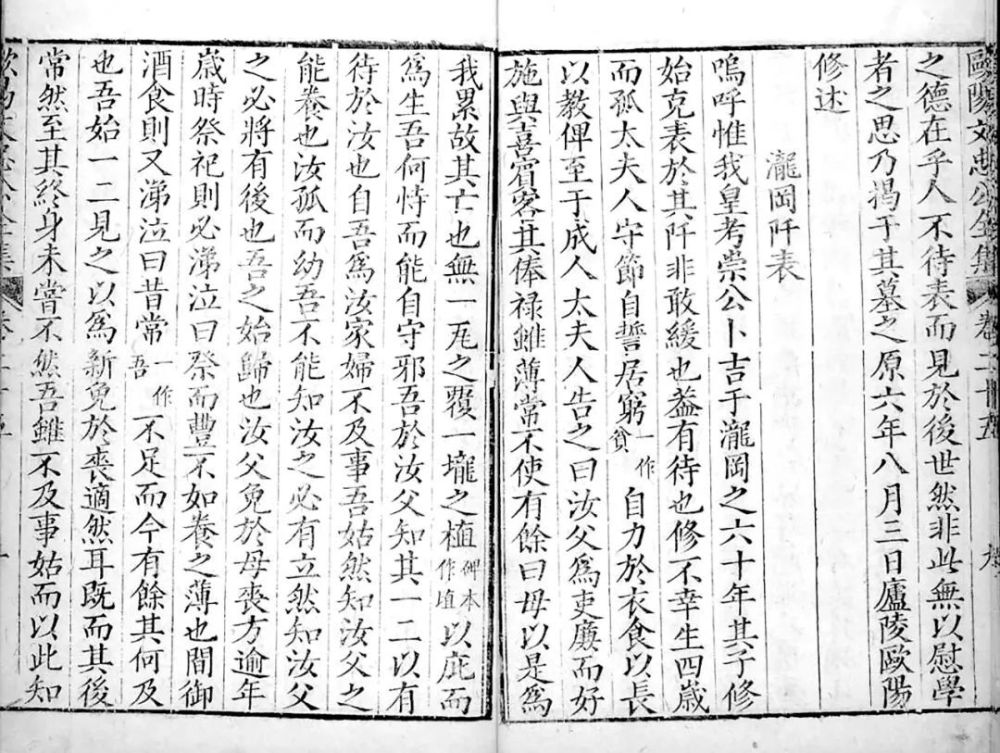 歐陽文忠公全集 卷二十五
之德在乎人不待表而見於後世然非此無以慰學
者之思乃揭于其墓之原六年八月三日廬陵歐陽
修述
瀧岡阡表
嗚呼惟我皇考崇公卜吉于瀧岡之六十年其子修
始克表於其阡非敢緩也葢有待也修不幸生四歲
而孤太夫人守節自誓居窮一作貧自力於衣食以長
以教俾至于成人太夫人告之曰汝父爲吏廉而好
施與喜賓客其俸祿雖薄常不使有餘曰毋以是爲
我累故其亡也無一瓦之覆一壠之植碑本作埴以庇而
爲生吾何恃而能自守邪吾於汝父知其一二以有
待於汝也自吾爲汝家婦不及事吾姑然知汝父之
能養也汝孤而幼吾不能知汝之必有立然知汝父
之必將有後也吾之始歸也汝父免於母喪方逾年
歲時祭祀則必涕泣曰祭而豐不如養之薄也間御
酒食則又涕泣曰昔常一作吾不足而今有餘其何及
也吾始一二見之以爲新免於喪適然耳既而其後
常然至其終身未嘗不然吾雖不及事姑而以此知